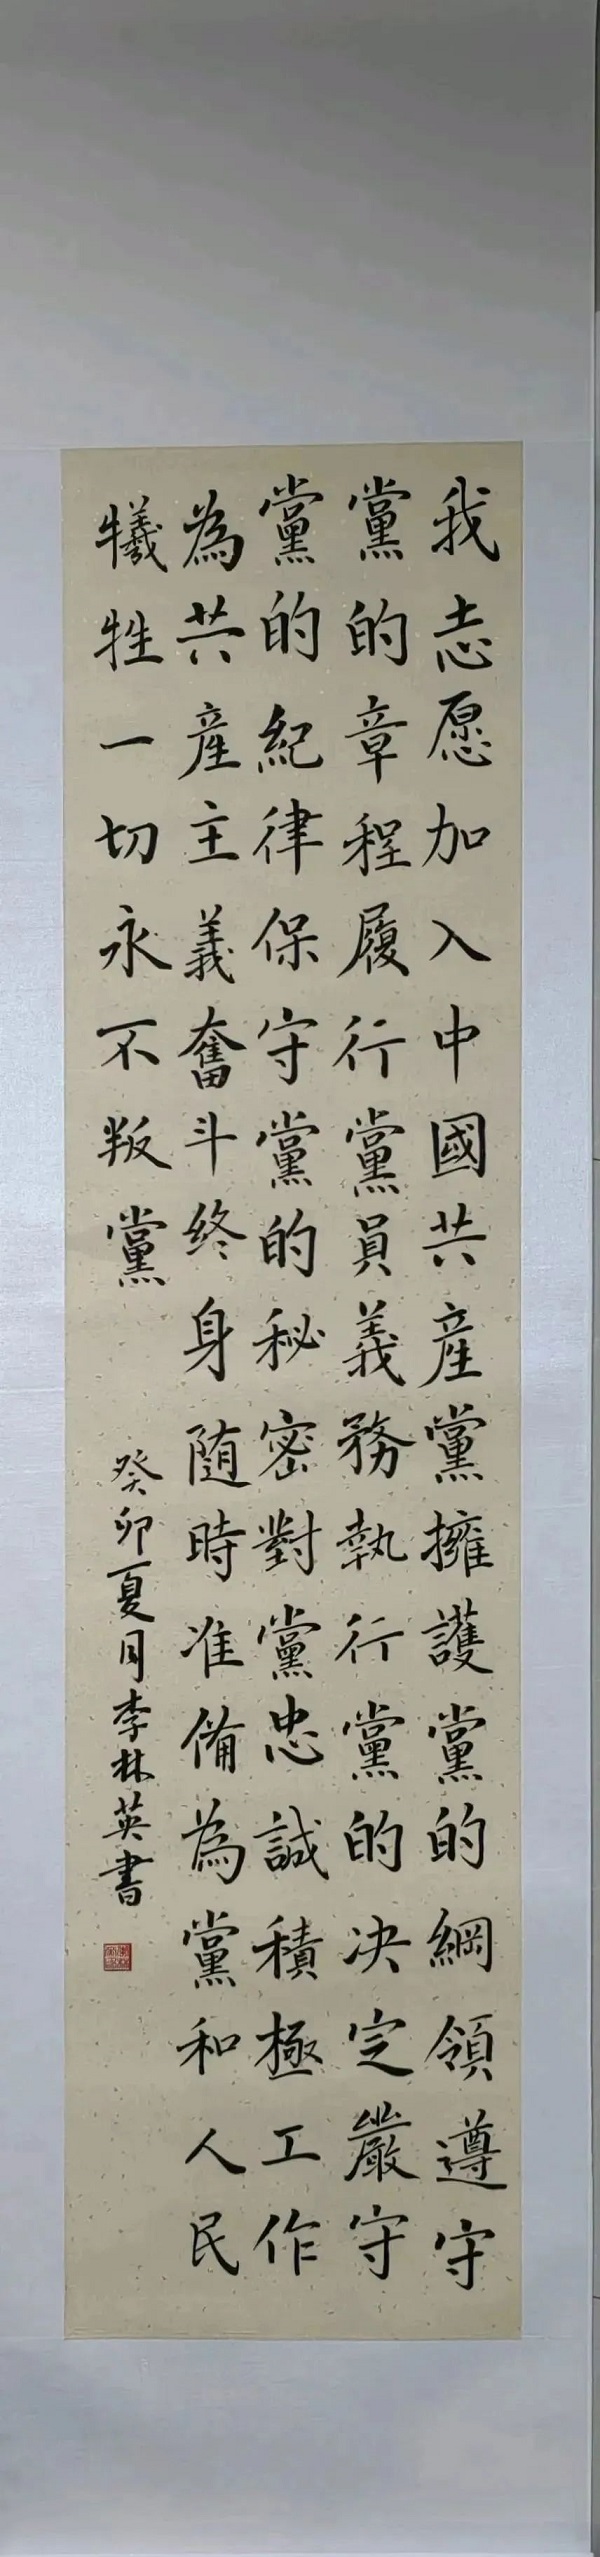 我志愿加入中國共産黨擁護黨的綱領遵守
黨的章程履行黨員義務執行黨的决定嚴守
黨的紀律保守黨的秘密對黨忠誠積極工作
為共産主義奮斗终身随時准備為黨和人民
犧牲一切永不叛黨
癸卯夏月李林英書